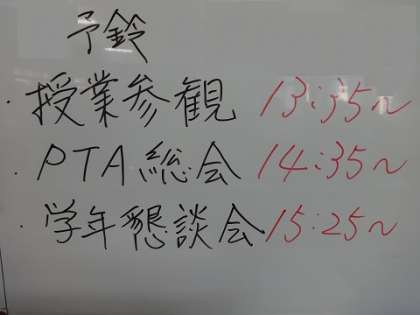 予鈴
・授業参観 13:35~
・PTA総会 14:35~
・学年懇談会 15:25~